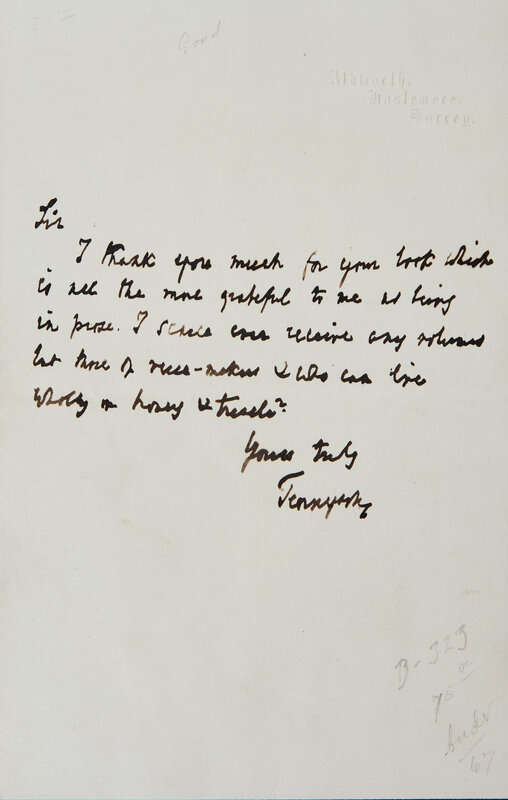 Good
Aldworth,
Haslemere,
Surrey.
Sir
I thank you much for your book which
is all the more grateful to me as being
in prose. I scarce ever receive any volumes
but those of verse-makers & who can live
wholly on honey & treacle?
Yours truly
Tennyson
B-323
75
67